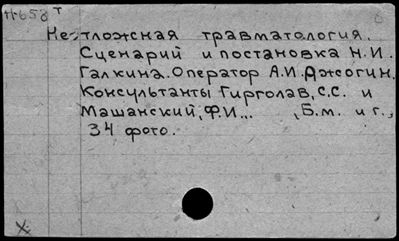 Н-658 т
Неотложная травматология.
Сценарий и постановка Н.И.
Галкина. Оператор А.И. Джогин.
Консультанты Гирголав, С.С. и
Машанский, Ф.И... , Б.м. и г.,
34 фото.